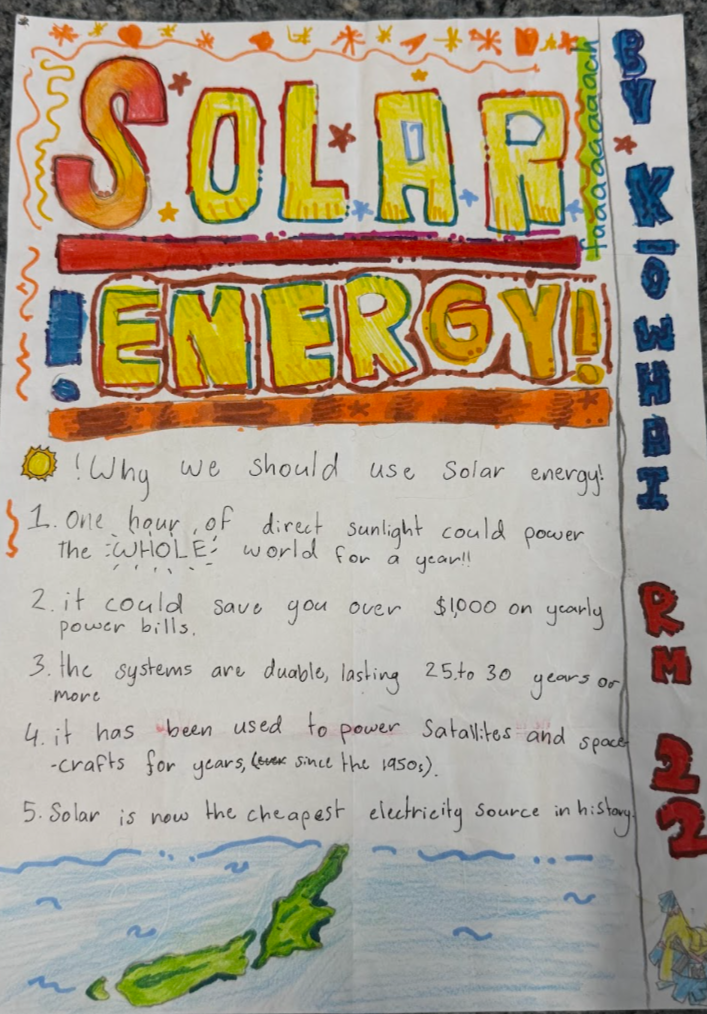 SOLAR
!ENERGY!
faaaaaaaaaach
!Why we should use Solar energy!
1. One hour of direct sunlight could power
the WHOLE world for a year!!
2. it could save you over $1,000 on yearly
power bills.
3. the systems are duable, lasting 25 to 30 years or
more
4. it has been used to power Satallites and space
-crafts for years, (since the 1950s).
5. Solar is now the cheapest electricity source in history.
BY KOWHAI RM 22